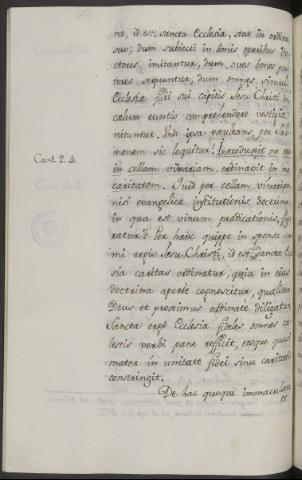 na, id est, sancta Ecclesia, stat in ordine
suo, dum subiecti in bonis operibus do-
ctores imitantur, dum oves bonos pas-
tores sequuntur, dum omnes simul
Ecclesiæ filii sui capitis Jesu Christi in
calum euntis comprehendere vestigia
nituntur. Inde ipsa exultans, per Salo-
monem sic loquitur: Introduxit me rex
Cant. 2. 4.
in cellam vinariam, ordinavit in me
caritatem. Quid per cellam vinariam
nisi evangelicæ institutionis doctrina
in qua est vinum prædicationis, figu-
ratur? Per hanc quippe in sponsa sum-
mi regis Jesu Christi, id est, sancta Eccle-
sia caritas ordinatur, quia in eius
doctrina aperte cognoscitur, qualiter
Deus et proximus ordinate diligatur.
Sancta ergo Ecclesia fideles omnes cæ-
lestis verbi pane reficit, eosque quasi
mater in unitate fidei sinu caritatis
constringit.
De hac quoque immaculata
et